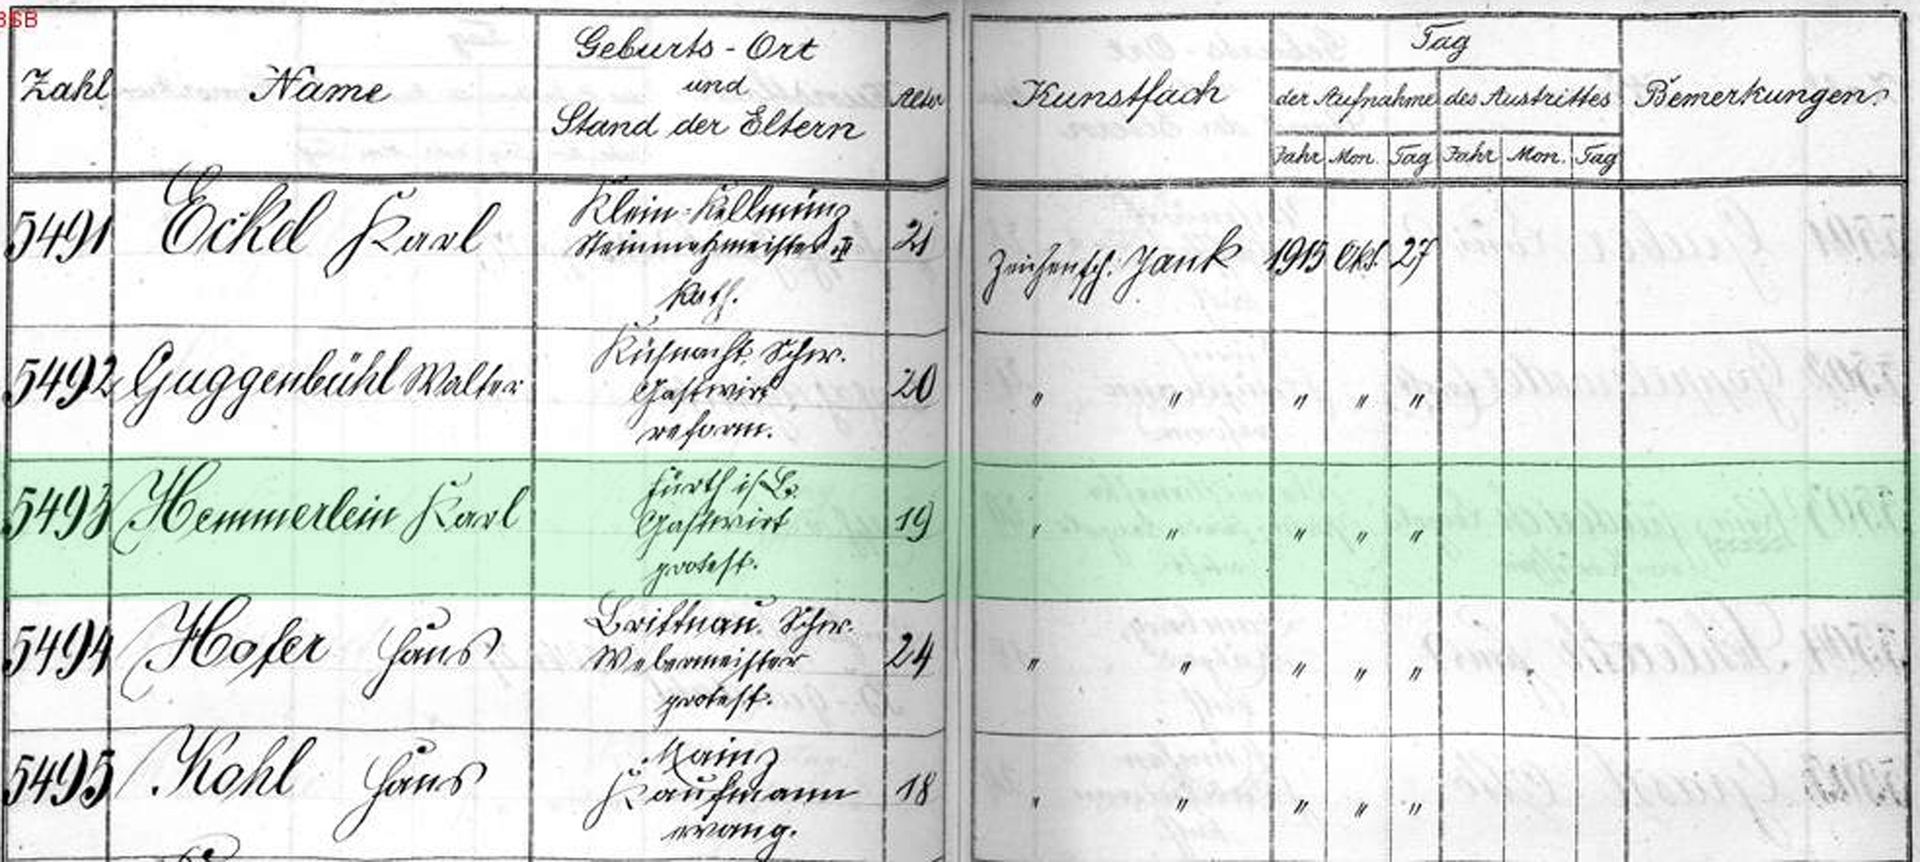 BSB
Zahl Name Geburts-Ort und Stand der Eltern Alter Kunstfach Tag der Aufnahme des Austrittes Bemerkungen
Jahr Mon. Tag Jahr Mon. Tag
Klein-Kellmünz
5491 Eckel Karl Steinmetzmeister 21 Zeichensch. Jank 1915 Okt. 27
kath.
Küsnacht Schw.
5492 Guggenbühl Walter Gastwirt 20 " " " " "
reform.
Fürth i/B.
5493 Hemmerlein Karl Gastwirt 19 " " " " "
protest.
Brittnau. Schw.
5494 Hofer Hans Webermeister 24 " " " " "
protest.
Mainz
5495 Kohl Hans Kaufmann 18 " " " " "
evang.